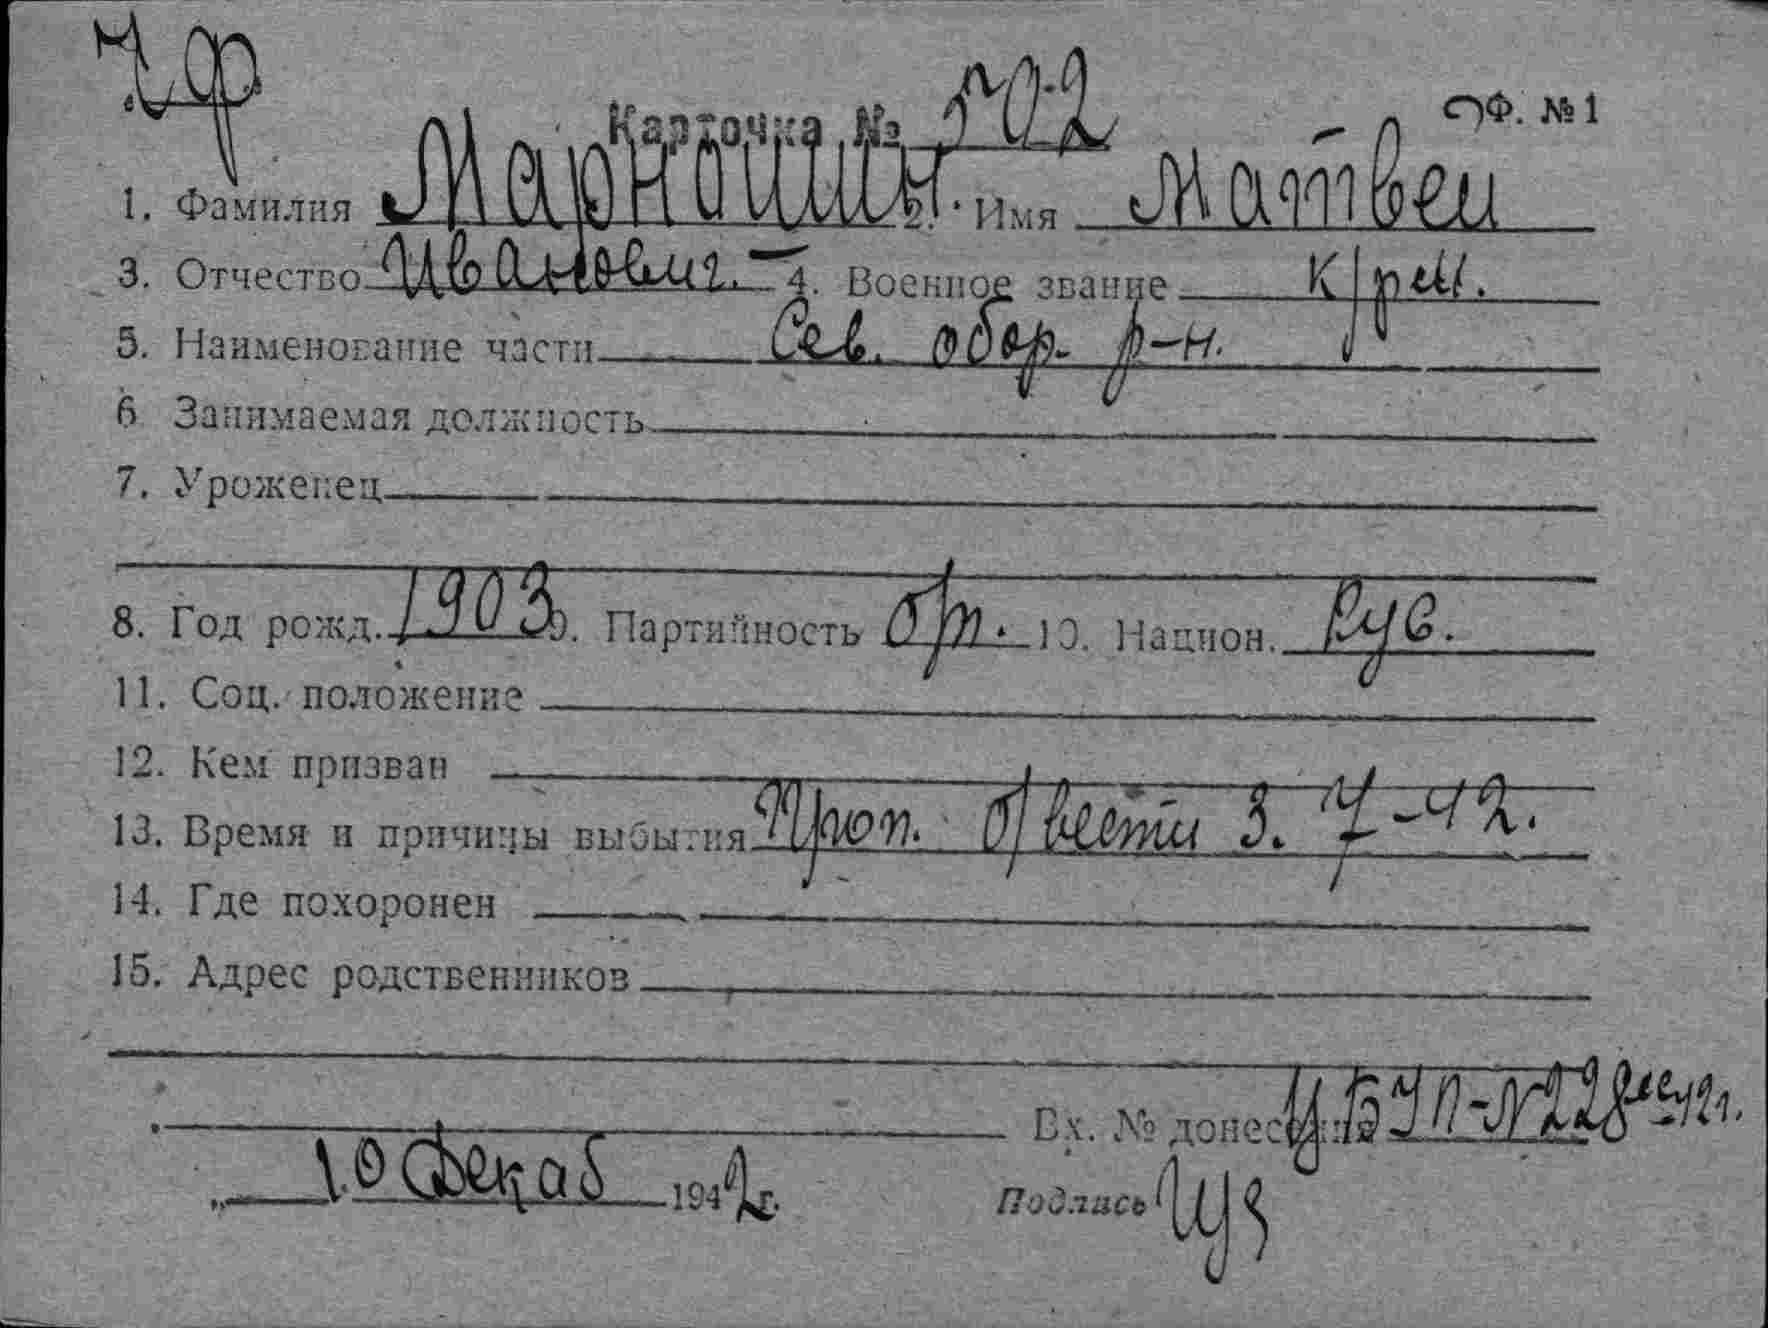 ЧФ
Карточка № 502 Ф. №1
1. Фамилия Марношин. 2. Имя Матвей
3. Отчество Иванович. 4. Военное звание к/фл.
5. Наименование части Сев. обор. р-н.
6 Занимаемая должность
7. Уроженец
8. Год рожд. 1903 9. Партийность б/п. 10. Национ. Рус.
11. Соц. положение
12. Кем призван
13. Время и причины выбытия Проп. б/вести 3. 7-42.
14. Где похоронен
15. Адрес родственников
Вх. № донесения УБУП-№228 42г.
„ 10 Декаб 1942г. Подпись